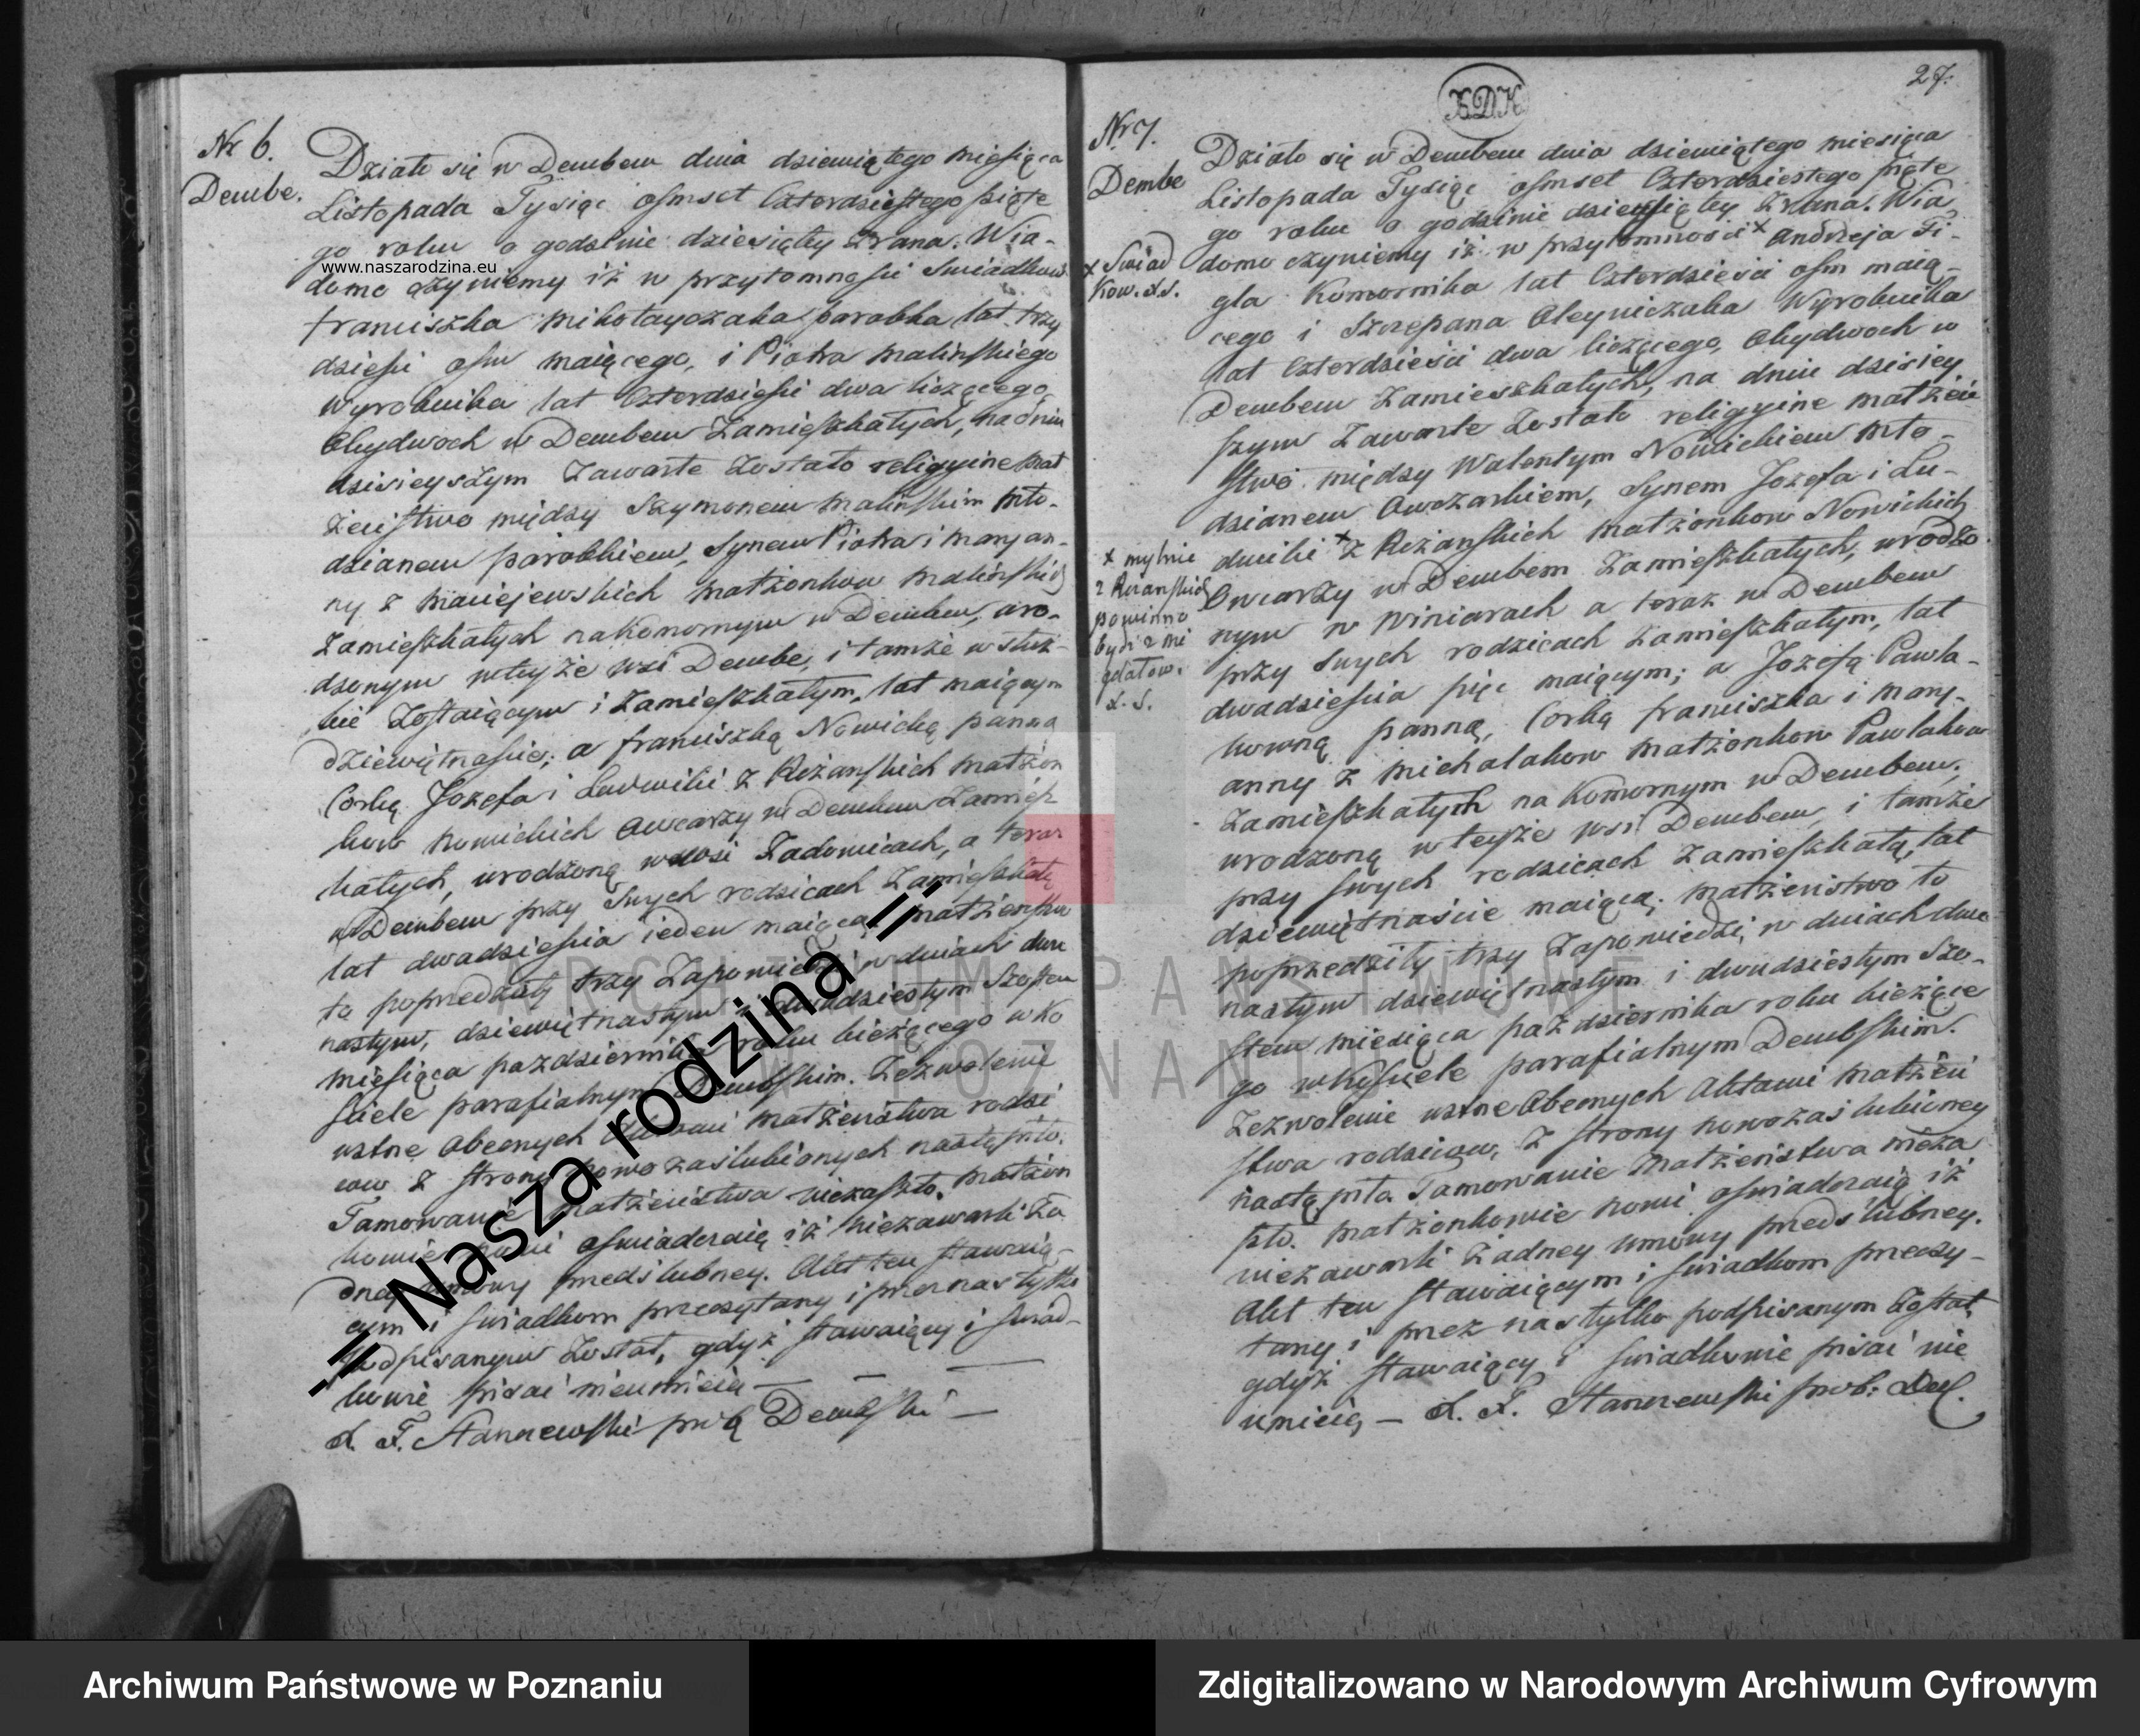 Nr 6.
Dembe.
Działo się w Dembem dnia dziewiątego miesiąca
Listopada Tysiąc osmset Czterdziestego piąte
go roku o godzinie dziesiątey zrana. Wia-
www.naszarodzina.eu
domo czyniemy iż w przytomności Swiadkow
Franciszka Mikołayczaka parobka lat trzy
dzieści osm maiącego, i Piotra Malinskiego
Wyrobnika lat Czterdzieści dwa liczącego
Obydwoch w Dembem Zamieszkałych, na dniu
dzisieyszym Zawarte Zostało religyine Mał
żeństwo między Szymonem Malinskim Mło-
dzianem parobkiem, Synem Piotra i Maryan-
ny z Maciejewskich Małżonkow Malinskich
Zamieszkałych na Komornym w Dembem, uro-
dzonym w teyże wsi Dembe, i tamże w służ-
bie Zostaiącym i Zamieszkałym, lat maiącym
dziewiętnaście; a Franciszką Nowicką panną
Corką Jozefa i Ludwiki z Rożanskich Małżon
kow Nowickich Owcarzy w Dembem Zamiesz
kałych, urodzoną w wsi Zadowicach, a teraz
w Dembem przy Swych rodzicach Zamieszkałą
lat dwadzieścia ieden maiącą, Małżeństwo
to poprzedziły trzy Zapowiedzi w dniach dwu
nastym, dziewiętnastym i dwudziestym Szostem
Miesiąca pazdziernika roku bieżącego w Ko
ściele parafialnym Dembskim. Zezwolenie
ustne Obecnych Aktowi Małżeństwa rodzi
cow z strony Nowozaślubionych nastąpiło.
Tamowanie Małżeństwa niezaszło. Małżon
kowie nowi oświadczaią iż niezawarli Ża
dney umowy przedślubney. Akt ten stawaią-
cym i świadkom przeczytany i przez nas tylko
podpisanym Został, gdyż stawaiący i świad-
kowie pisać nieumieią —
X. F. Stanczewski prob Dembski —
27.
KDK
Nr 7.
Dembe
Działo się w Dembem dnia dziewiątego miesiąca
Listopada Tysiąc osmset Czterdziestego piąte
go roku o godzinie dziesiątey zrana. Wia
x Swiad
kow. X.S.
domo czyniemy iż w przytomności x Andrzeja Fi-
gla Komornika lat Czterdzieści osm maią-
cego i Szczepana Oleyniczaka Wyrobnika
lat Czterdzieści dwa liczącego, Obydwoch w
Dembem Zamieszkałych, na dniu dzisiey
szym Zawarte Zostało religyine Małżeń
stwo między Walentym Nowickiem Mło-
dzianem Owczarkiem, Synem Jozefa i Lu-
dwiki x z Rożanskich Małżonkow Nowickich
x mylnie
z Rożanskich
powinno
być z Mi
gdałow.
X. S.
Owcarzy w Dembem Zamieszkałych, urodzo
nym w Winiarach a teraz w Dembem
przy Swych rodzicach Zamieszkałym, lat
dwadzieścia pięć maiącym; a Jozefą Pawla-
kowną panną, Corką Franciszka i Mary-
anny z Michalakow Małżonkow Pawlakow
Zamieszkałych na Komornym w Dembem,
urodzoną w teyże wsi Dembem, i tamże
przy swych rodzicach Zamieszkałą, lat
dziewiętnaście maiącą; Małżeństwo to
poprzedziły trzy Zapowiedzi, w dniach dwu
nastym dziewiętnastym i dwudziestym Szo-
stem miesiąca pazdziernika roku bieżące
go w Kościele parafialnym Dembskim.
Zezwolenie ustne Obecnych Aktowi Małżeń
stwa rodzicow, z strony nowozaślubioney
nastąpiło. Tamowanie Małżeństwa nieza
szło. Małżonkowie nowi oświadczaią iż
niezawarli Żadney umowy przedślubney.
Akt ten stawaiącym i świadkom przeczy-
tany i przez nas tylko podpisanym Został
gdyż stawaiący i świadkowie pisać nie
umieią, — X. F. Stanczewski prob: Dem.
ARCHIWUM PAŃSTWOWE
W POZNANIU
:= Nasza rodzina =:
Archiwum Państwowe w Poznaniu
Zdigitalizowano w Narodowym Archiwum Cyfrowym